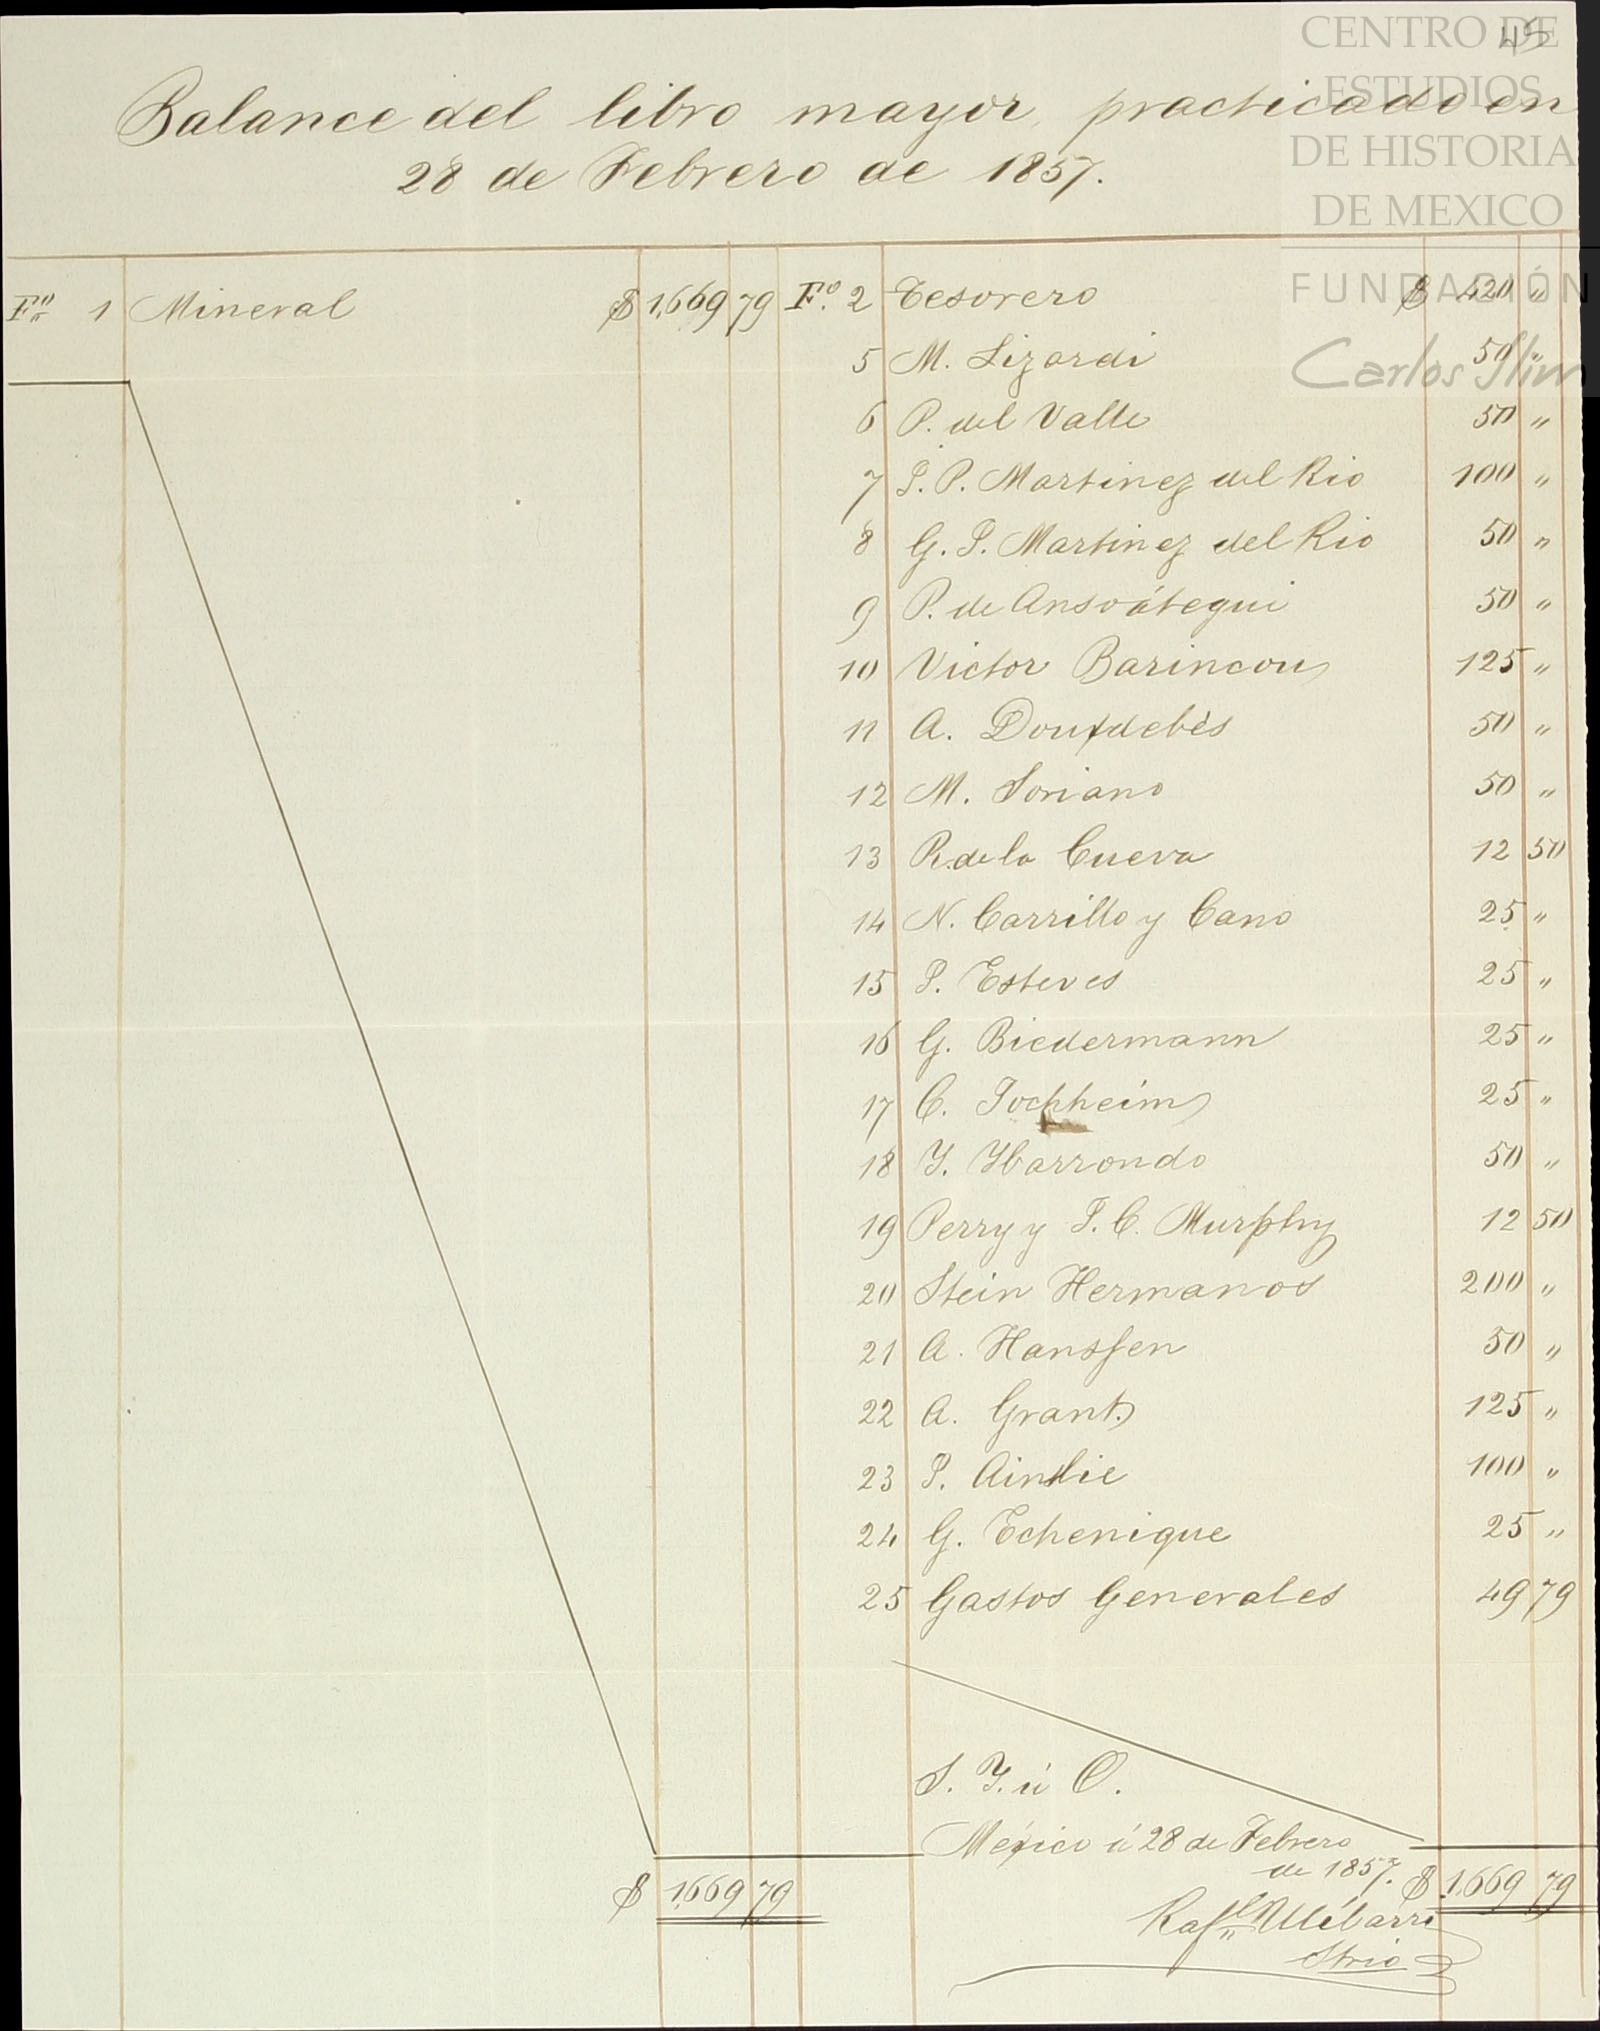 CENTRO DE
ESTUDIOS
DE HISTORIA
DE MEXICO
FUNDACIÓN
Carlos Slim
45
Balance del libro mayor, practicado en
28 de Febrero de 1857.
Fº 1 Mineral $ 1,669 79 Fº 2 Tesorero $ 420 "
5 M. Lizardi 50 "
6 P. del Valle 50 "
7 J. P. Martinez del Rio 100 "
8 G. J. Martinez del Rio 50 "
9 P. de Ansoátegui 50 "
10 Victor Barincou 125 "
11 A. Doutdebès 50 "
12 M. Soriano 50 "
13 R. de la Cueva 12 50
14 N. Carrillo y Cano 25 "
15 P. Esteves 25 "
16 G. Biedermann 25 "
17 C. 25 "
18 Y. Ybarrondo 50 "
19 Perry y J. C. Murphy 12 50
20 Stein Hermanos 200 "
21 A. Hanssen 50 "
22 A. Grant. 125 "
23 P. Ainslie 100 "
24 G. Echenique 25 "
25 Gastos Generales 49 79
S. Y. ú O.
México á 28 de Febrero
de 1857.
$ 1,669 79 $ 1,669 79
Rafl Ulibarri
Strio